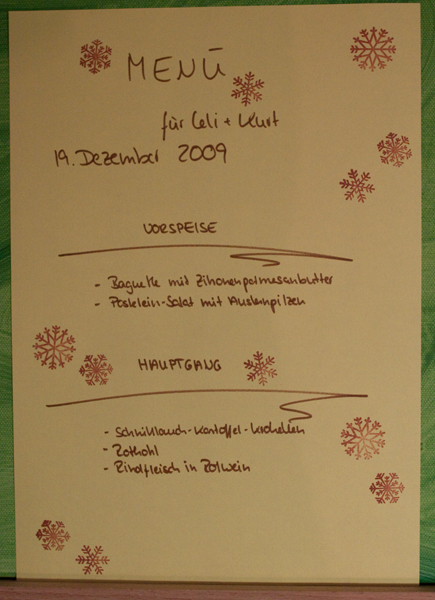 MENÜ
für Celi + Kurt
19. Dezember 2009
VORSPEISE
- Baguette mit Zitronenparmesanbutter
- Postelein-Salat mit Austernpilzen
HAUPTGANG
- Schnittlauch-Kartoffel-Kroketten
- Rotkohl
- Rindfleisch in Rotwein